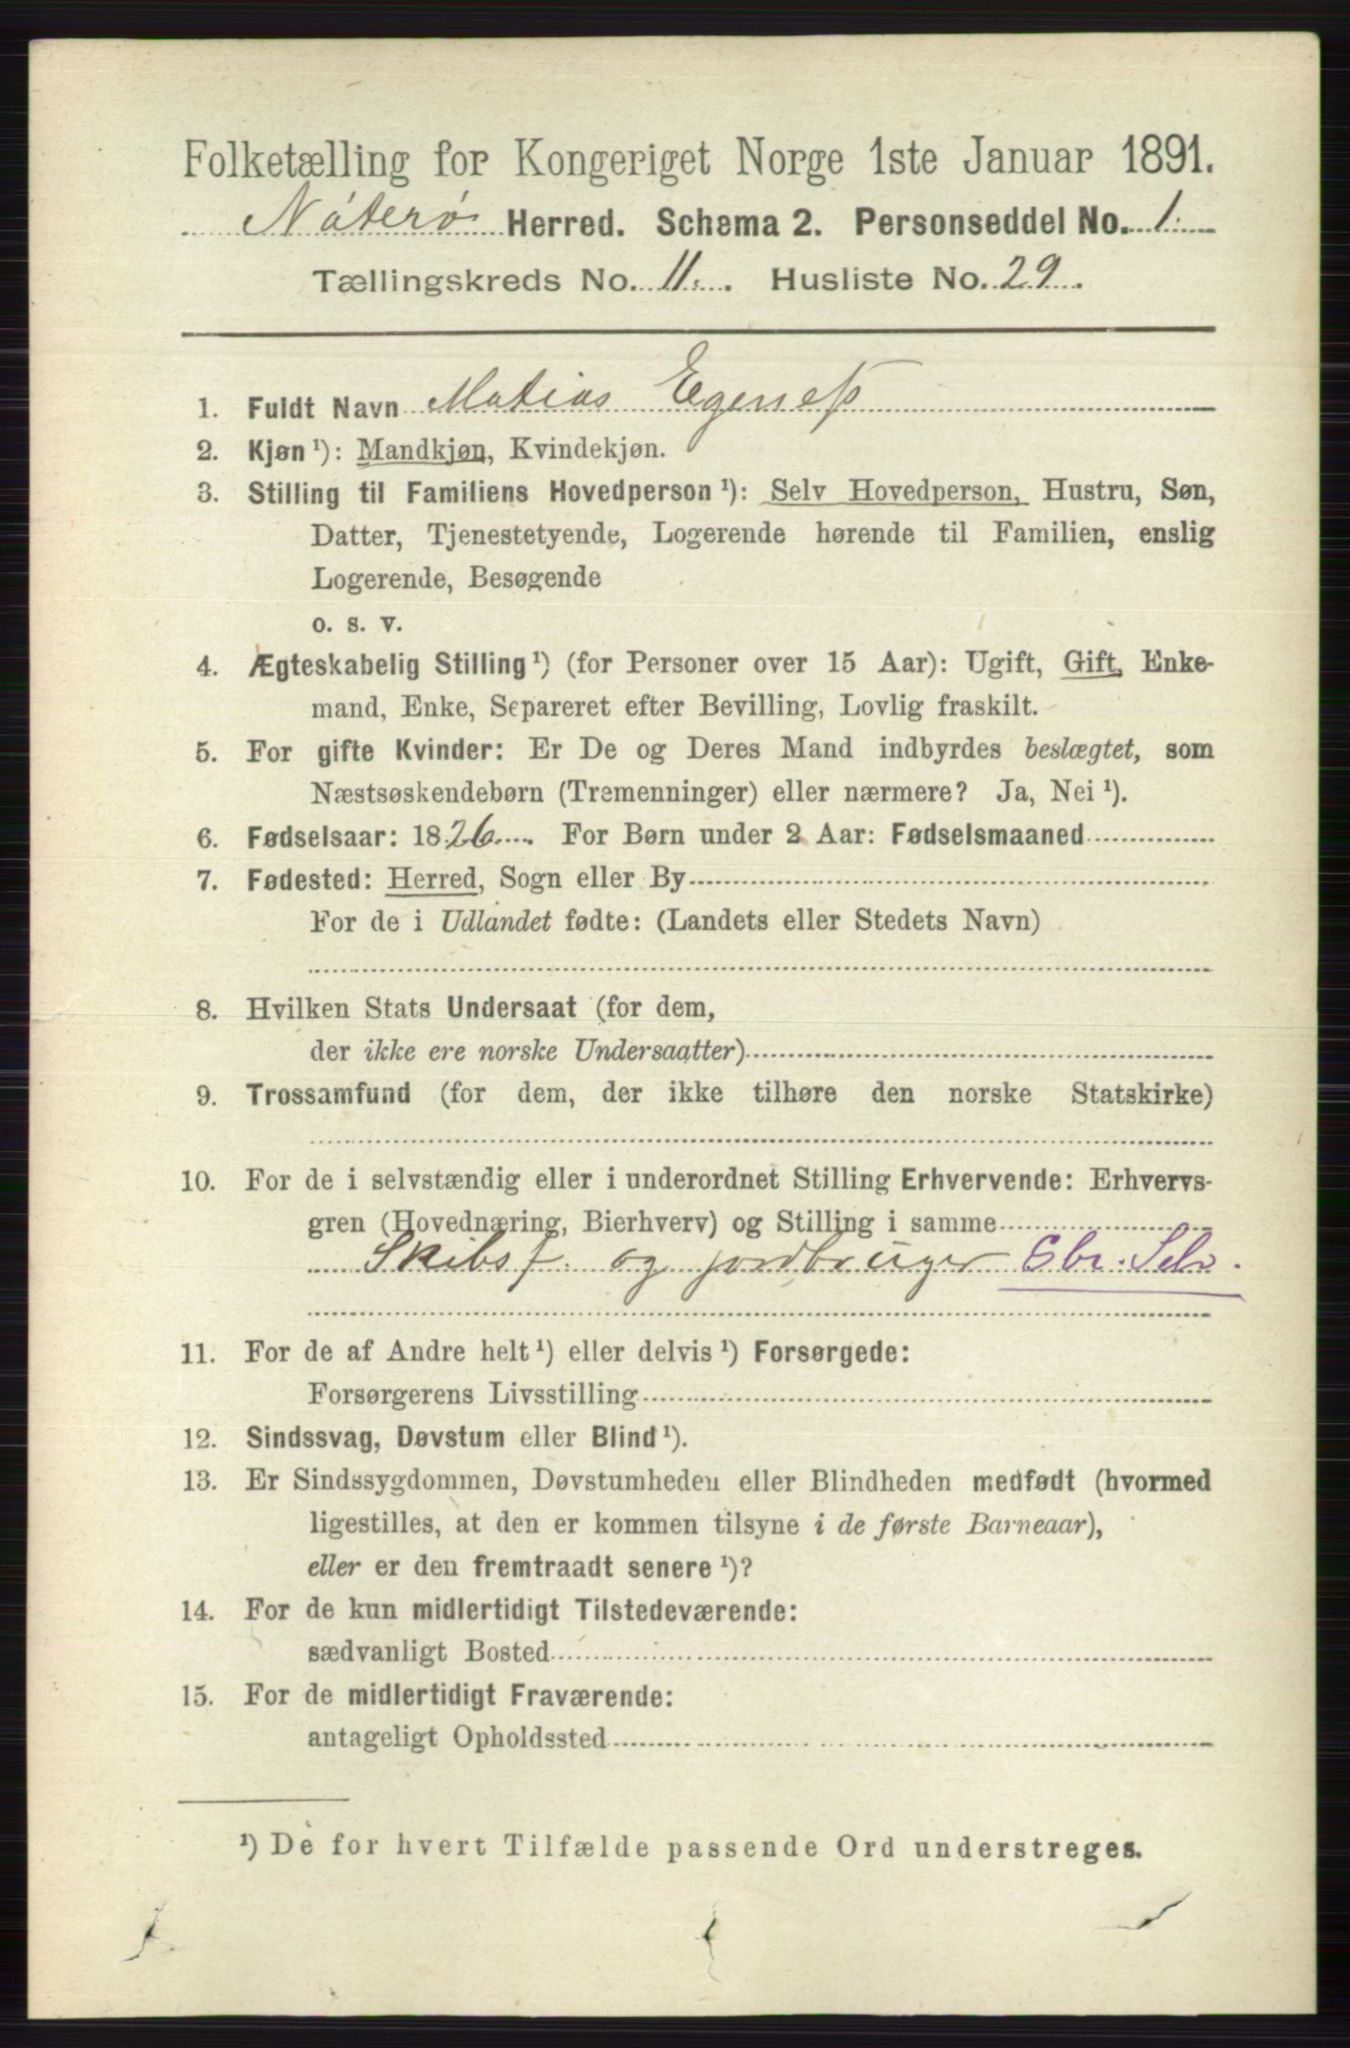 Folketælling for Kongeriget Norge 1ste Januar 1891.
Nøterø Herred. Schema 2. Personseddel No. 1.
Tællingskreds No. 11. Husliste No. 29.
1. Fuldt Navn Matias Egeness
2. Kjøn ¹): Mandkjøn, Kvindekjøn.
3. Stilling til Familiens Hovedperson ¹): Selv Hovedperson, Hustru, Søn,
Datter, Tjenestetyende, Logerende hørende til Familien, enslig
Logerende, Besøgende
o. s. v.
4. Ægteskabelig Stilling ¹) (for Personer over 15 Aar): Ugift, Gift, Enke-
mand, Enke, Separeret efter Bevilling, Lovlig fraskilt.
5. For gifte Kvinder: Er De og Deres Mand indbyrdes beslægtet, som
Næstsøskendebørn (Tremenninger) eller nærmere? Ja, Nei ¹).
6. Fødselsaar: 1826. For Børn under 2 Aar: Fødselsmaaned
7. Fødested: Herred, Sogn eller By
For de i Udlandet fødte: (Landets eller Stedets Navn)
8. Hvilken Stats Undersaat (for dem,
der ikke ere norske Undersaatter)
9. Trossamfund (for dem, der ikke tilhøre den norske Statskirke)
10. For de i selvstændig eller i underordnet Stilling Erhvervende: Erhvervs-
gren (Hovednæring, Bierhverv) og Stilling i samme
Skibsf. og jordbruger Gbr. Selv.
11. For de af Andre helt ¹) eller delvis ¹) Forsørgede:
Forsørgerens Livsstilling
12. Sindssvag, Døvstum eller Blind ¹).
13. Er Sindssygdommen, Døvstumheden eller Blindheden medfødt (hvormed
ligestilles, at den er kommen tilsyne i de første Barneaar),
eller er den fremtraadt senere ¹)?
14. For de kun midlertidigt Tilstedeværende:
sædvanligt Bosted
15. For de midlertidigt Fraværende:
antageligt Opholdssted
¹) De for hvert Tilfælde passende Ord understreges.